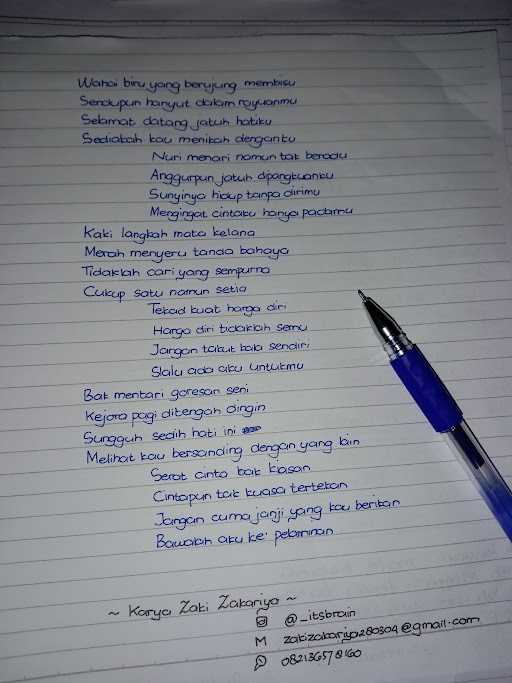 Wahai biru yang berujung membisu
Sendupun hanyut dalam rayuanmu
Selamat datang jatuh hatiku
Sediakah kau menikah denganku
Nuri menari namun tak beradu
Anggurpun jatuh dipangkuanku
Sunyinya hidup tanpa dirimu
Mengingat cintaku hanya padamu
Kaki langkah mata kelana
Merah menyeru tanda bahaya
Tidaklah cari yang sempurna
Cukup satu namun setia
Tekad kuat harga diri
Harga diri tidaklah semu
Jangan takut kala sendiri
Slalu ada aku untukmu
Bak mentari goresan seni
Kejora pagi ditengah dingin
Sungguh sedih hati ini
Melihat kau bersanding dengan yang lain
Serat cinta bak kiasan
Cintapun tak kuasa tertekan
Jangan cuma janji yang kau berikan
Bawalah aku ke pelaminan
~ Karya Zaki Zakariya ~
@_itsbrain
zakizakariya280304@gmail.com
082136578160